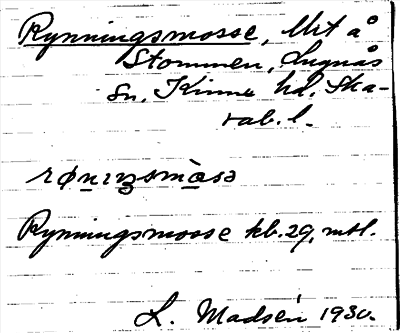 Rynningsmosse, Urt å
Stommen, Lugnås
sn. Kinne hd. Ska-
rab. l.
røniŋsmòsə
Rynningsmosse kb. 29, mtl.
L. Madsén 1930.